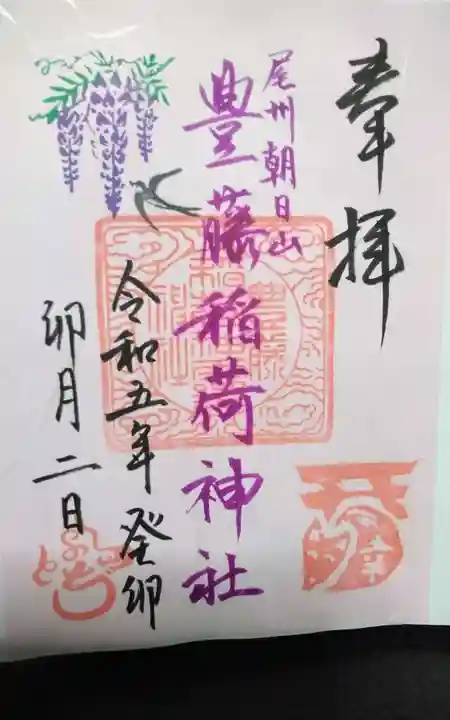 奉拝
尾州朝日山
豊藤稲荷神社
令和五年 癸卯
卯月二日